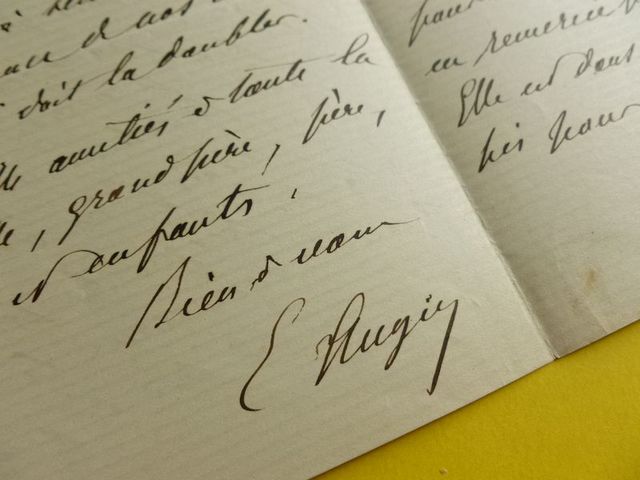 doit la doubler.
amitiés à toute la
, grand père, père,
et enfants.
Bien à vous
E Augier
pour
en remercie
Elle est dans